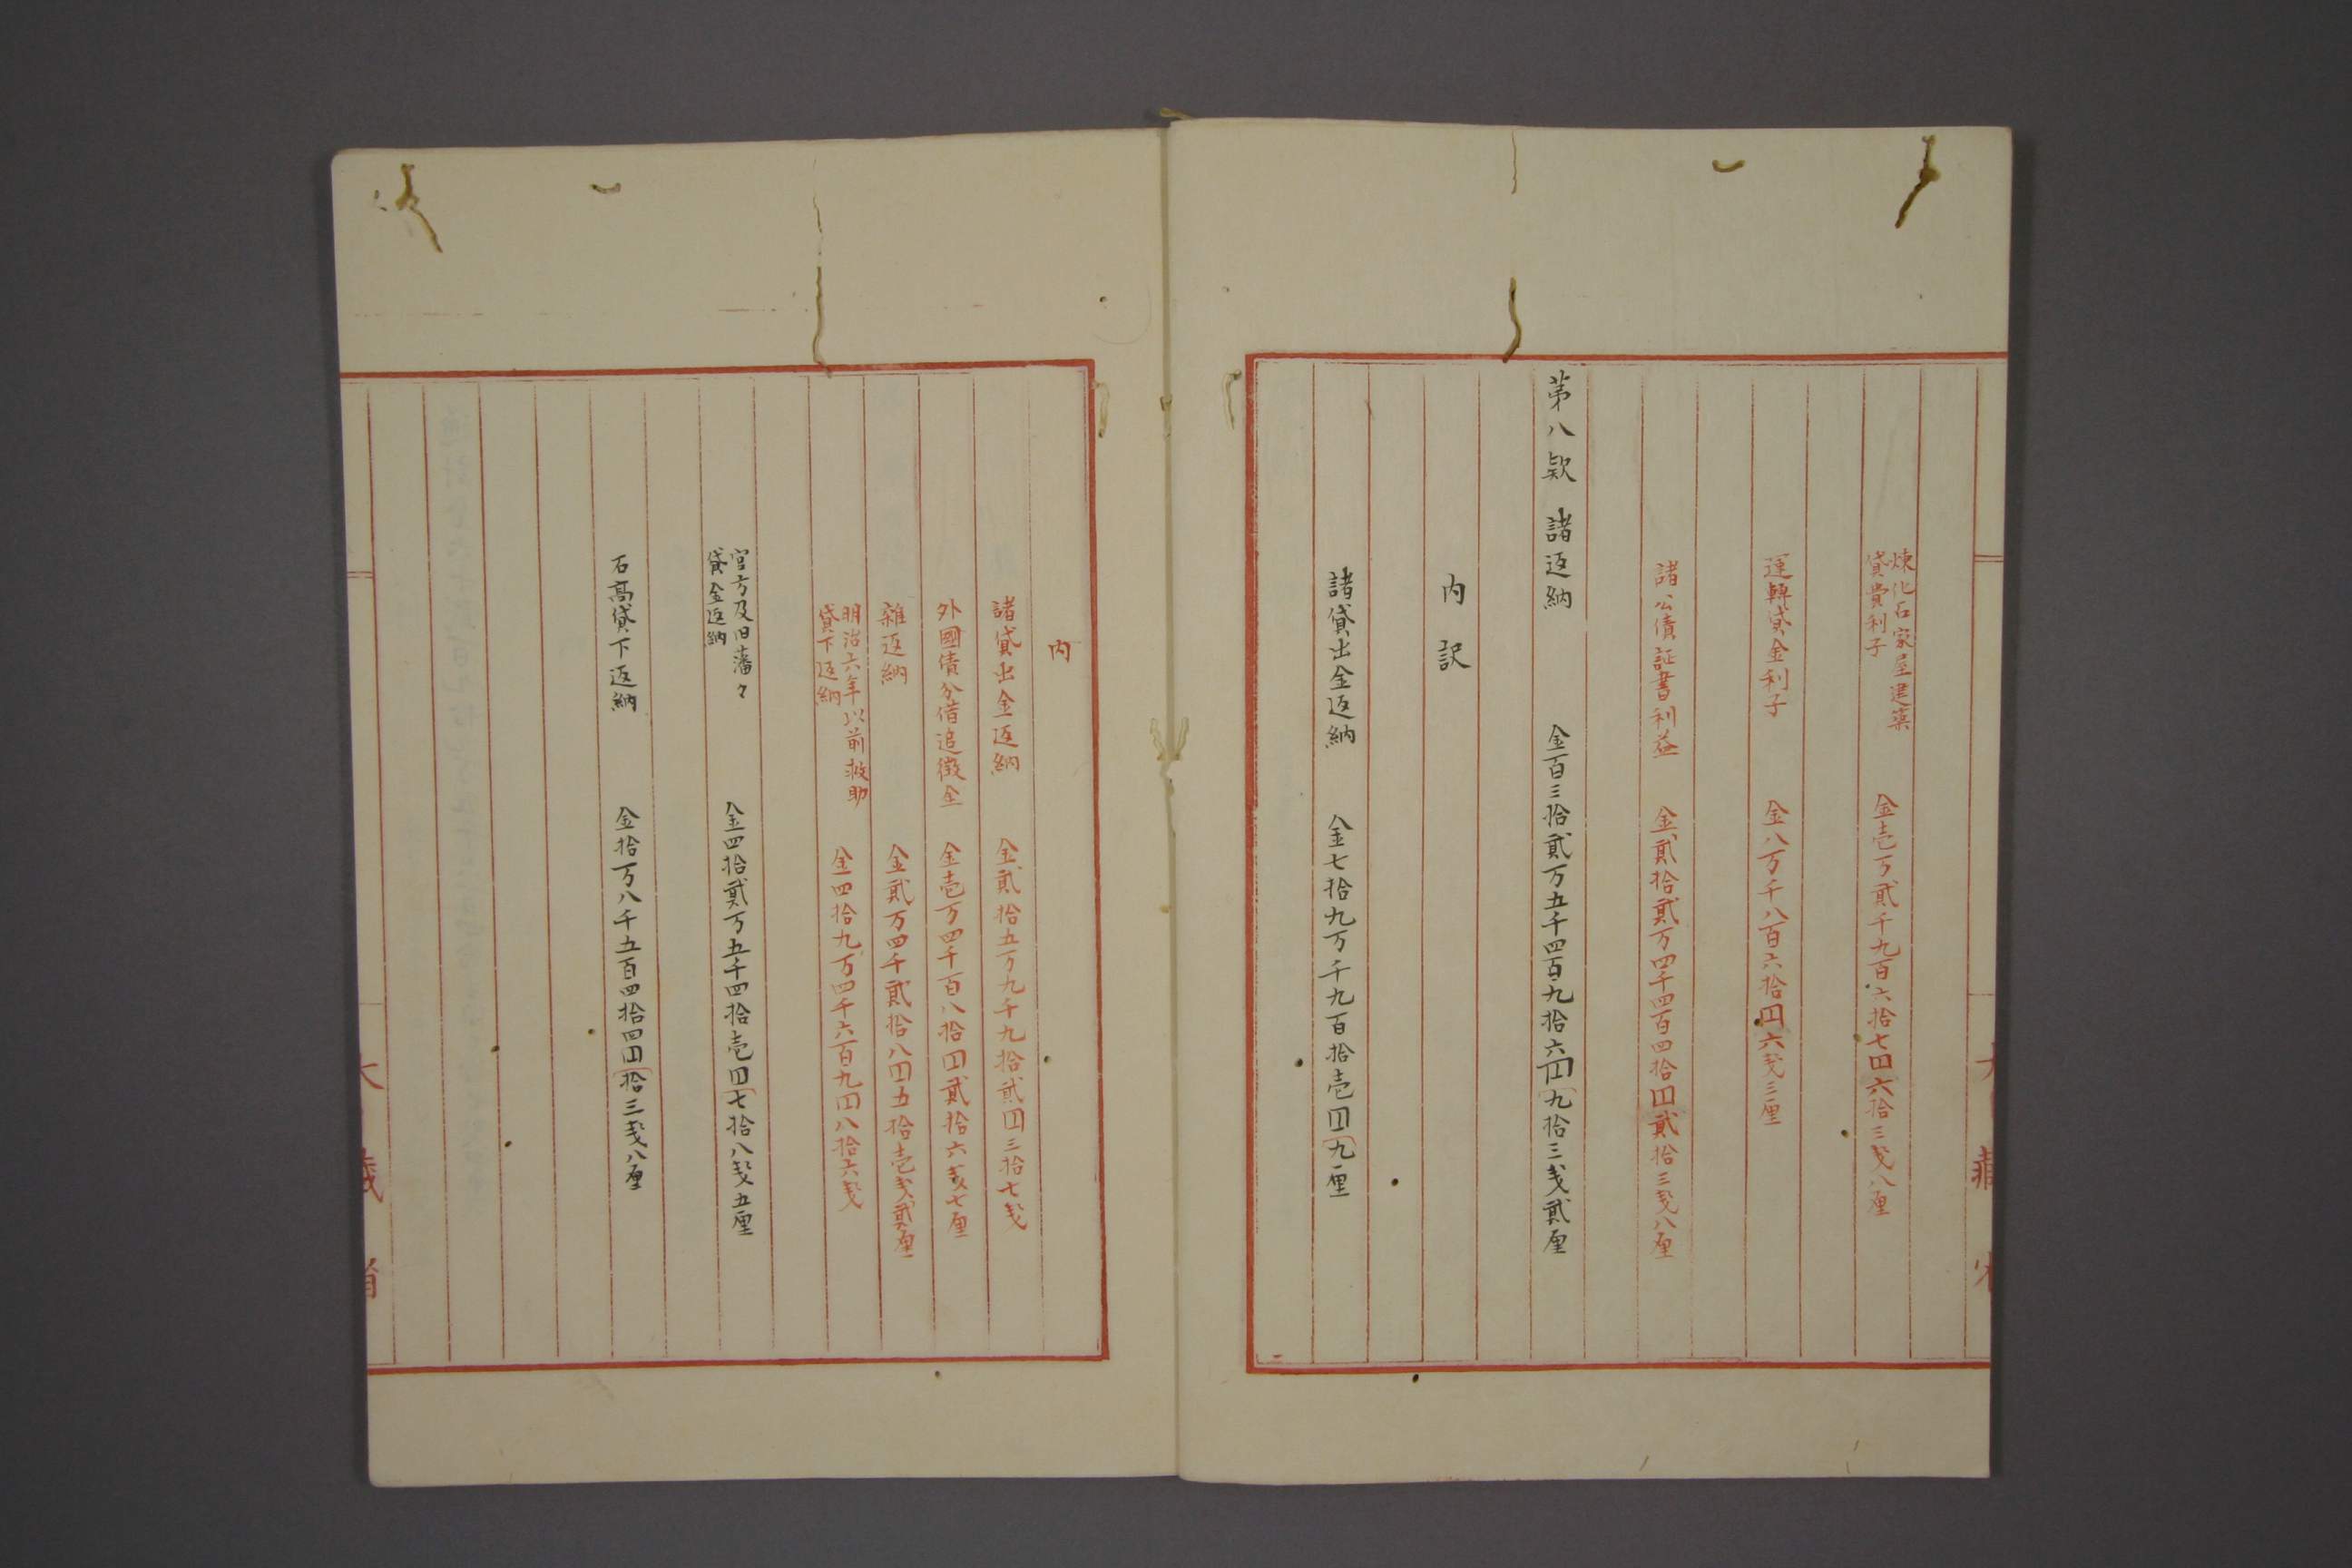 煉化石家屋建築
貸費利子　金壱万貳千九百六拾七円六拾三戔八厘
運轉貸金利子　金八万千八百六拾円六戔三厘
諸公債証書利益　金貳拾貳万四千四百四拾円貳拾三戔八厘
第八款　諸返納　金百三拾貳万五千四百九拾六円九拾三戔貳厘
内訳
諸貸出金返納　金七拾九万千九百拾壱円九厘
内
諸貸出金返納　金貳拾五万九千九拾貳円三拾七戔
外國債分借追徴金　金壱万四千百八拾円貳拾六戔七厘
雜返納　金貳万四千貳拾八円五拾壱戔貳厘
明治六年以前救助
貸下返納　金四拾九万四千六百九円八拾六戔
官方及旧藩々
貸金返納　金四拾貳万五千四拾壱円七拾八戔五厘
石高貸下返納　金拾万八千五百四拾四円拾三戔八厘
大藏省